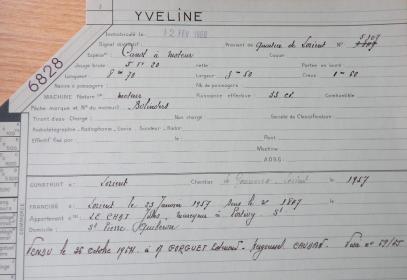 YVELINE
6828
Immatriculé le 12 FEV 1960
Signal distinctif Provient de Quartier de Lorient N°
Espèce Canot à moteur Coque
Jauge brute 5 Tx 20 nette Portée en lourd
Longueur 8m 70 Largeur 3-50 Creux 1-50
Navire à passagers Nb. de passagers
MACHINE Nature moteur Puissance effective 33 CV Combustible
Marque et N° du moteur Bolinders
Tirant d'eau : Chargé Non chargé Société de Classification
Radiotélégraphie - Radiophonie - Gonio - Sondeur - Radar
Effectif fixé par : Pont
Machine
ADSG
CONSTRUIT à Lorient Chantier 1957
FRANCISÉ à Lorient le 23 Janvier 1957 sous le n° 1807
Appartenant à LE CHAT
Domicile : St Pierre Quiberon
VENDU le 26 octobre 1971 à
COMMERCE